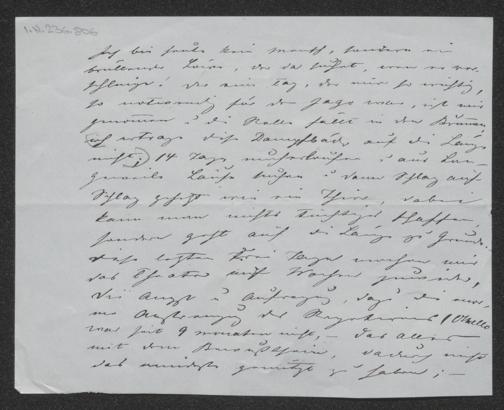 I.N. 236.806
Ich bin heute kein Mensch, sondern ein
brüllender Löwe, der da sucht, wen er ver-
schlinge! Der ein Tag, der mir so wichtig,
so notwendig für den Jago war, ist mir
genommen u die Rolle fällt in den Brunnen
ich ertrage diese Dampfbäder auf die Länge
nicht, 14 Tage u aus Lan-
geweile u dann Schlag auf
Schlag gehetzt wie ein Thier, dabei
kann man nichts Tüchtiges schaffen,
sondern geht auf die Länge zu Grunde.
Diese letzten drei Tage machen mir
das Theater auf Wochen
Die Angst u Aufregung, dazu die
me Anstrengung des Repetierens (Othello
war seit 9 Monaten nicht, – das Alles
mit dem Bewußtsein, dadurch nicht
das mindeste genützt zu haben; –